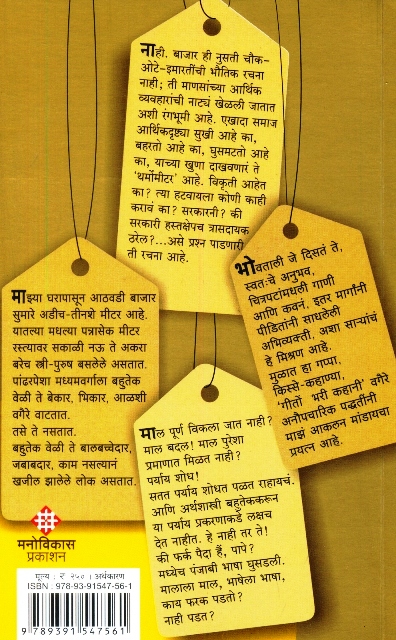 नाही. बाजार ही नुसती चौक-
ओटे-इमारतींची भौतिक रचना
नाही; ती माणसांच्या आर्थिक
व्यवहारांची नाट्यं खेळली जातात
अशी रंगभूमी आहे. एखादा समाज
आर्थिकदृष्ट्या सुखी आहे का,
बहरतो आहे का, घुसमटतो आहे
का, याच्या खुणा दाखवणारं ते
'थर्मोमीटर' आहे. विकृती आहेत
का? त्या हटवायला कोणी काही
करावं का? सरकारनी? की
सरकारी हस्तक्षेपच त्रासदायक
ठरेल?...असे प्रश्न पाडणारी
ती रचना आहे.
भोवताली जे दिसतं ते,
स्वतःचे अनुभव,
चित्रपटांमधली गाणी
आणि कवनं, इतर मार्गांनी
पीडितांनी साधलेली
अभिव्यक्ती, अशा साऱ्यांचं
हे मिश्रण आहे.
मुळात हा गप्पा,
किस्से-कहाण्या,
'गीतों भरी कहानी' वगैरे
अनौपचारिक पद्धतींनी
माझं आकलन मांडायचा
प्रयत्न आहे.
माझ्या घरापासून आठवडी बाजार
सुमारे अडीच-तीनशे मीटर आहे.
यातल्या मधल्या पन्नासेक मीटर
रस्त्यावर सकाळी नऊ ते अकरा
बरेच स्त्री-पुरुष बसलेले असतात.
पांढरपेशा मध्यमवर्गाला बहुतेक
वेळी ते बेकार, भिकार, आळशी
वगैरे वाटतात.
तसे ते नसतात.
बहुतेक वेळी ते बालबच्चेदार,
जबाबदार, काम नसल्यानं
खजील झालेले लोक असतात.
माल पूर्ण विकला जात नाही?
माल बदल! माल पुरेशा
प्रमाणात मिळत नाही?
पर्याय शोध!
सतत पर्याय शोधत पळत राहायचं.
आणि अर्थशास्त्री बहुतेककरून
या पर्याय प्रकरणाकडे लक्षच
देत नाहीत. हे नाही तर ते!
की फर्क पैंदा हैं, पापे?
मध्येच पंजाबी भाषा घुसडली.
मालाला माल, भाषेला भाषा,
काय फरक पडतो?
नाही पडत?
मनोविकास
प्रकाशन
मूल्य : ₹ २५० : अर्थकारण
ISBN : 978-93-91547-56-1
9 789391 547561